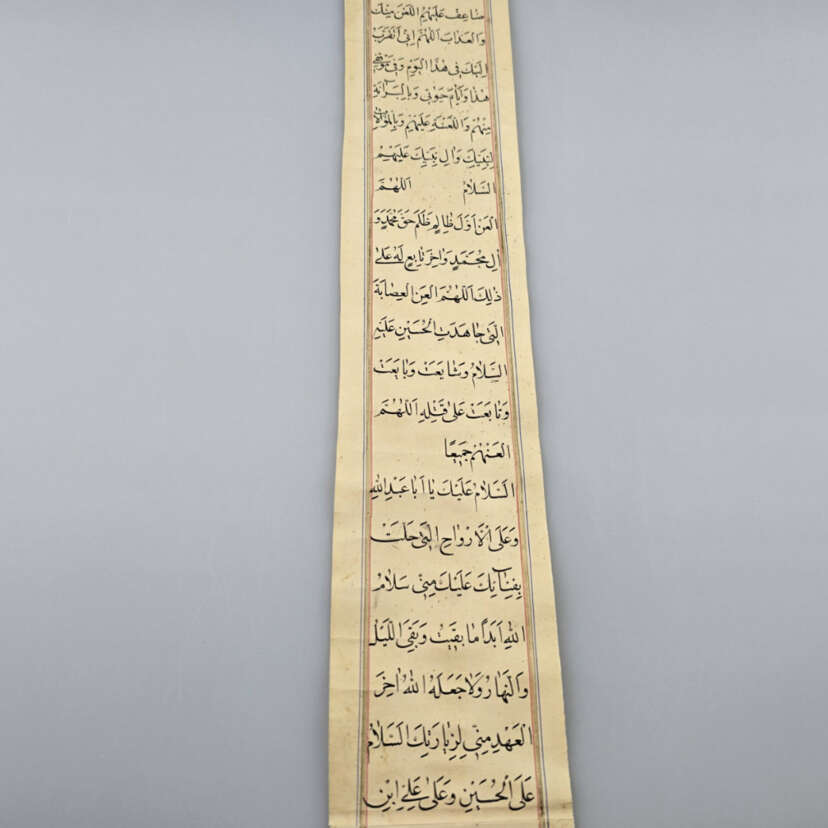 ضاعِف عَلَیْهِمُ اللَّعْنَ مِنْكَ
وَالْعَذابَ اَللّٰهُمَّ اِنّی اَتَقَرَّبُ
اِلَیْكَ فی هٰذَا الْیَوْمِ وَفی مَوْقِفی
هٰذا وَاَیّامِ حَیٰوتی وَبِالْبَرآئَةِ
مِنْهُمْ وَاللَّعْنَةِ عَلَیْهِمْ وَبِالْمُوٰالاتِ
لِنَبِیِّكَ وَاٰلِ نَبِیِّكَ عَلَیْهِمُ
السَّلامُ اَللّٰهُمَّ
الْعَنْ اَوَّلَ ظالِمٍ ظَلَمَ حَقَّ مُحَمَّدٍ وَ
اٰلِ مُحَمَّدٍ وَاٰخِرَ تابِعٍ لَهُ عَلیٰ
ذٰلِكَ اَللّٰهُمَّ الْعَنِ الْعِصابَةَ
الَّتی جاهَدَتِ الْحُسَیْنِ عَلَیْهِ
السَّلامُ وَشایَعَتْ وَبایَعَتْ
وَتابَعَتْ عَلیٰ قَتْلِهِ اَللّٰهُمَّ
الْعَنْهُمْ جَمیعًا
اَلسَّلامُ عَلَیْكَ یا اَبا عَبْدِ اللهِ
وَعَلَی الْاَرْواحِ الَّتی حَلَّتْ
بِفِنآئِكَ عَلَیْكَ مِنّی سَلامُ
اللهِ اَبَدًا ما بَقیٖتُ وَبَقِیَ اللَّیْلُ
وَالنَّهارُ وَلا جَعَلَهُ اللهُ اٰخِرَ
الْعَهْدِ مِنّی لِزِیارَتِكَ اَلسَّلامُ
عَلَی الْحُسَیْنِ وَعَلیٰ عَلِیِّ ابْنِ